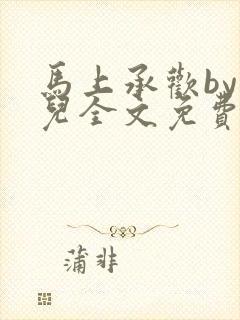 馬上承歡by
兒全文免費
蒲非